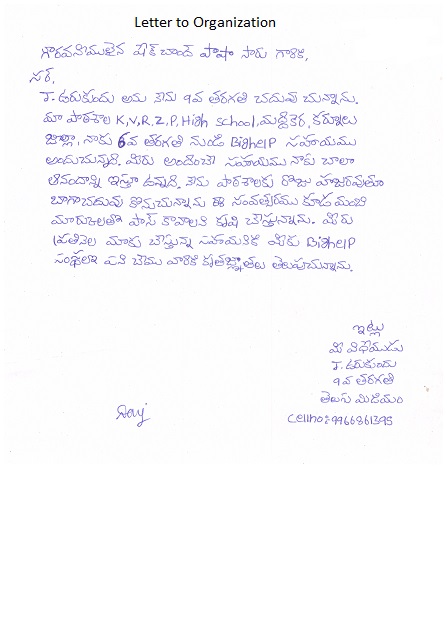 Letter to Organization
గౌరవనీయులైన షేక్ చాంద్ పాషా సారు గారికి,
సర్,
T. ఉరుకుందు అను నేను 9వ తరగతి చదువు చున్నాను.
మా పాఠశాల K,V,R.Z,P,High school,మద్దికెర, కర్నూలు
జిల్లా, నాకు 6వ తరగతి నుండి BigHelP సహాయము
అందుచున్నది. మీరు అందించే సహాయము నాకు చాలా
ఆనందాన్ని ఇస్తూ ఉన్నది. నేను పాఠశాలకు రోజు హాజరవుతూ
బాగాచదువు కొనుచున్నాను ఈ సంవత్సరము కూడ మంచి
మారుకులతో పాస్ కావాలని కృషి చేస్తున్నాను. మీరు
ప్రతినెల మాకు చేస్తున్న సహాయానికి మీకు BigHelP
సంస్థలో పని చేయు వారికి కృతజ్ఞతలు తెలుపుచున్నాను.
ఇట్లు
మీ విధేయుడు
T. ఉరుకుందు
9వ తరగతి
తెలుగు మీడియం
Cellno:-9966861395